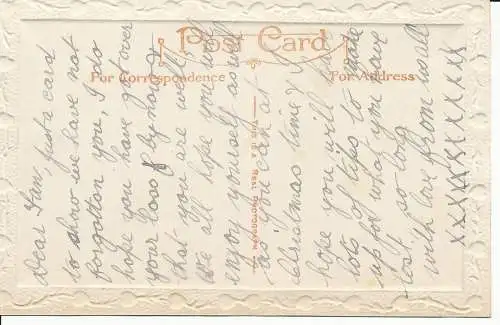 Post Card
For Correspondence
For Address
This is a Real Photograph
Dear Fam, just a card
to show we have not
forgotten you, I do
hope you have got over
your loss by now &
that you are well
We all hope you will
enjoy yourself as well
as you can at
Christmas time & I
hope you will have
lots of tips to make
up for what you have
lost so long
with love from us all
xxxxxxxxxxxx